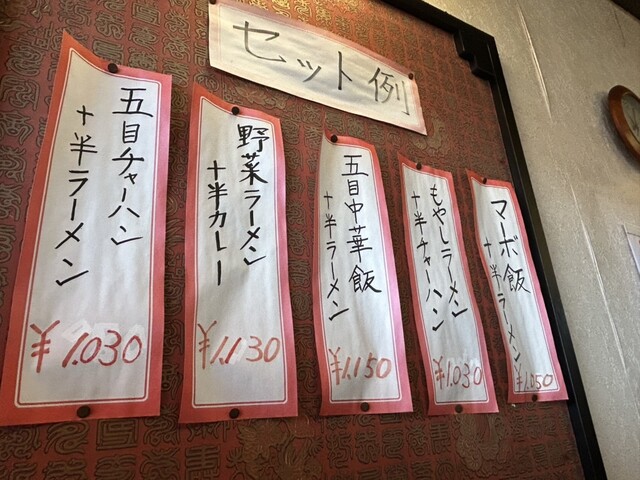 セット例
五目チャーハン
+半ラーメン
¥1.030
野菜ラーメン
+半カレー
¥1.130
五目中華飯
+半ラーメン
¥1.150
もやしラーメン
+半チャーハン
¥1.030
マーボ飯
+半ラーメン
¥1.050